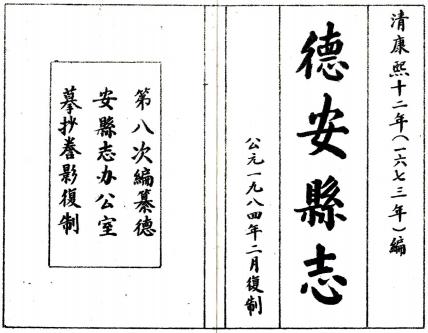 清康熙十二年(一六七三年)編
德安縣志
公元一九八四年二月復制
第八次編纂德
安縣志办公室
摹抄謄影復制